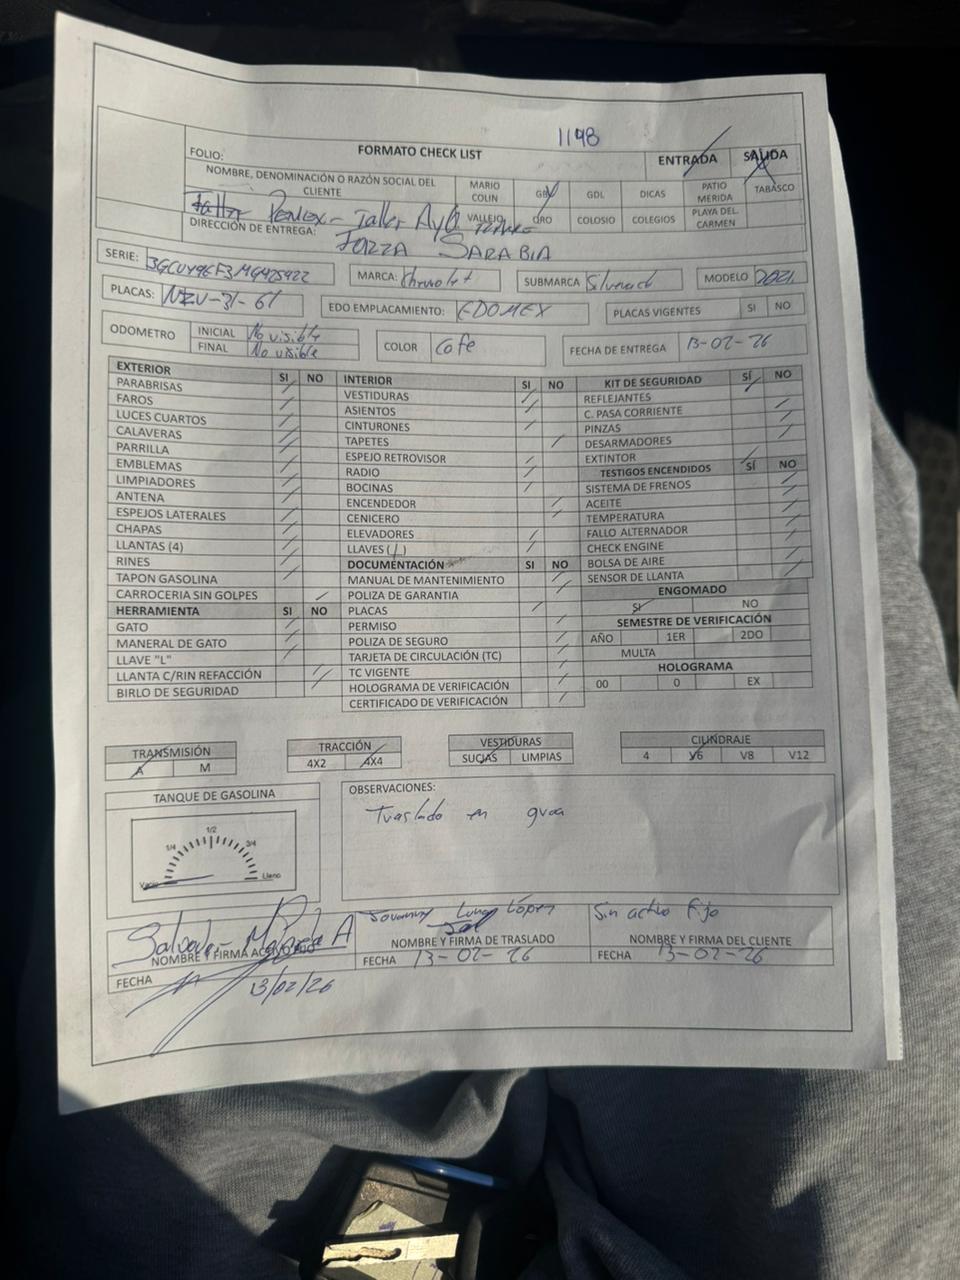 1198
FOLIO: FORMATO CHECK LIST ENTRADA SALIDA
NOMBRE, DENOMINACIÓN O RAZÓN SOCIAL DEL CLIENTE
MARIO COLIN GBV GDL DICAS PATIO MERIDA TABASCO
VALLEJO QRO COLOSIO COLEGIOS PLAYA DEL CARMEN
Taller Penlex - Taller
DIRECCIÓN DE ENTREGA: FORZZA SARABIA
SERIE: MARCA: Chevrolet SUBMARCA MODELO 2021
PLACAS: NZV-31-61 EDO EMPLACAMIENTO: EDOMEX PLACAS VIGENTES SI NO
ODOMETRO INICIAL No visible
FINAL No visible
COLOR Cafe FECHA DE ENTREGA 13-02-26
EXTERIOR SI NO
PARABRISAS
FAROS
LUCES CUARTOS
CALAVERAS
PARRILLA
EMBLEMAS
LIMPIADORES
ANTENA
ESPEJOS LATERALES
CHAPAS
LLANTAS (4)
RINES
TAPON GASOLINA
CARROCERIA SIN GOLPES
HERRAMIENTA SI NO
GATO
MANERAL DE GATO
LLAVE "L"
LLANTA C/RIN REFACCIÓN
BIRLO DE SEGURIDAD
INTERIOR SI NO
VESTIDURAS
ASIENTOS
CINTURONES
TAPETES
ESPEJO RETROVISOR
RADIO
BOCINAS
ENCENDEDOR
CENICERO
ELEVADORES
LLAVES (1)
DOCUMENTACIÓN SI NO
MANUAL DE MANTENIMIENTO
POLIZA DE GARANTIA
PLACAS
PERMISO
POLIZA DE SEGURO
TARJETA DE CIRCULACIÓN (TC)
TC VIGENTE
HOLOGRAMA DE VERIFICACIÓN
CERTIFICADO DE VERIFICACIÓN
KIT DE SEGURIDAD SÍ NO
REFLEJANTES
C. PASA CORRIENTE
PINZAS
DESARMADORES
EXTINTOR
TESTIGOS ENCENDIDOS SÍ NO
SISTEMA DE FRENOS
ACEITE
TEMPERATURA
FALLO ALTERNADOR
CHECK ENGINE
BOLSA DE AIRE
SENSOR DE LLANTA
ENGOMADO
SI NO
SEMESTRE DE VERIFICACIÓN
AÑO 1ER 2DO
MULTA
HOLOGRAMA
00 0 EX
TRANSMISIÓN
A M
TRACCIÓN
4X2 4X4
VESTIDURAS
SUCIAS LIMPIAS
CILINDRAJE
4 V6 V8 V12
TANQUE DE GASOLINA
Vacio 1/4 1/2 3/4 Lleno
OBSERVACIONES:
Traslado en grua
Salvador A
NOMBRE Y FIRMA
FECHA 13/02/26
Jovanny Luna López
NOMBRE Y FIRMA DE TRASLADO
FECHA 13-02-26
Sin activo fijo
NOMBRE Y FIRMA DEL CLIENTE
FECHA 13-02-26